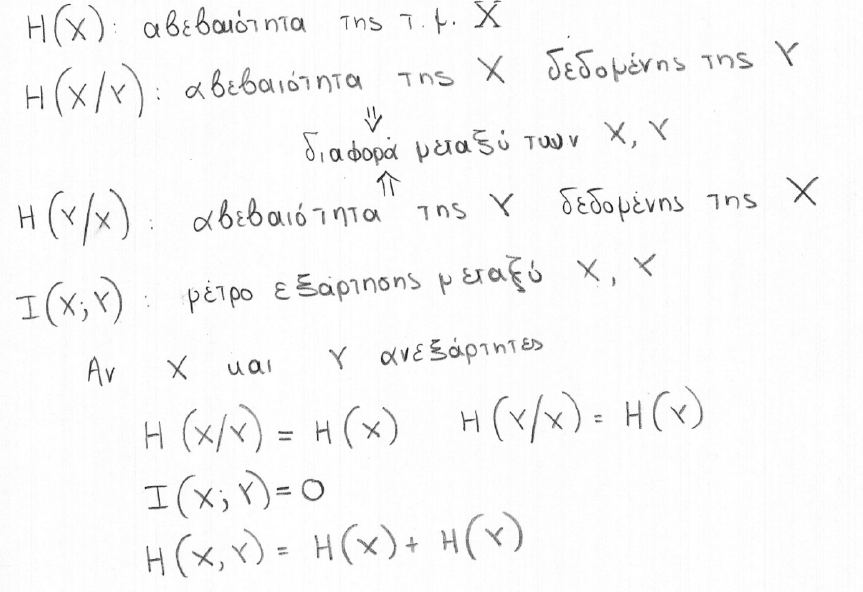 H(X): αβεβαιότητα της τ.μ. X
H(X/Y): αβεβαιότητα της X δεδομένης της Y
⇓
διαφορά μεταξύ των X, Y
⇑
H(Y/X): αβεβαιότητα της Y δεδομένης της X
I(X;Y): μέτρο εξάρτησης μεταξύ X, Y
Αν X και Y ανεξάρτητες
H(X/Y) = H(X) H(Y/X) = H(Y)
I(X;Y) = 0
H(X,Y) = H(X) + H(Y)